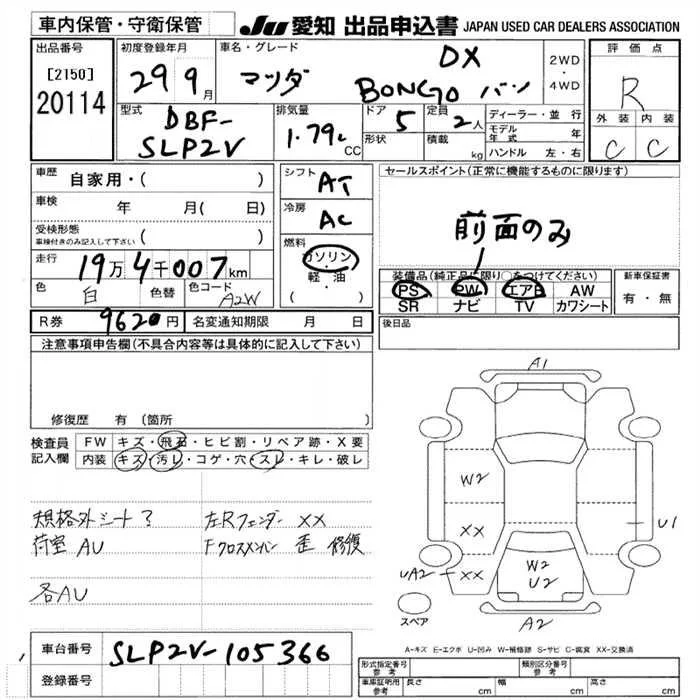 車内保管・守衛保管
JU 愛知 出品申込書 JAPAN USED CAR DEALERS ASSOCIATION
出品番号
[2150]
20114
初度登録年月
29 9月
車名・グレード
マツダ
DX
BONGO バン
2WD
・
4WD
評価点
R
外装 内装
C C
型式
DBF-
SLP2V
排気量
1.79L
CC
ドア
5
形状
定員
2人
積載
kg
ディーラー・並行
モデル年式 年
ハンドル 左・右
車歴
自家用・( )
車検 年 月( 日)
受検形態
車検付きのみ記入して下さい ( )
走行 19万4千007km
色 白 色替 色コード A2W
シフト
AT
冷房
AC
燃料
ガソリン
軽・油
( )
R券 9620円 名変通知期限 月 日
セールスポイント(正常に機能するものに限ります)
前面のみ
装備品(純正品に限り○をつけてください)
PS PW エアB AW
SR ナビ TV カワシート
新車保証書
有・無
後日品
注意事項申告欄(不具合内容等は具体的に記入して下さい)
修復歴 有(箇所
検査員
記入欄
FW キズ・飛石・ヒビ割・リペア跡・X要
内装 キズ・汚レ・コゲ・穴・スレ・キレ・破レ
規格外シート?
左Rフェンダー XX
荷室 AU
Fクロスメンバー 歪 修復
各AU
A1
W2
XX
U1
UA2
XX
W2
U2
A2
スペア
A-キズ E-エクボ U-凹み W-補修跡 S-サビ C-腐食 XX-交換済
車台番号 SLP2V-105366
登録番号
形式指定番号
参考
類別区分番号
参考
車庫証明用
参考
長さ cm 幅 cm 高さ cm